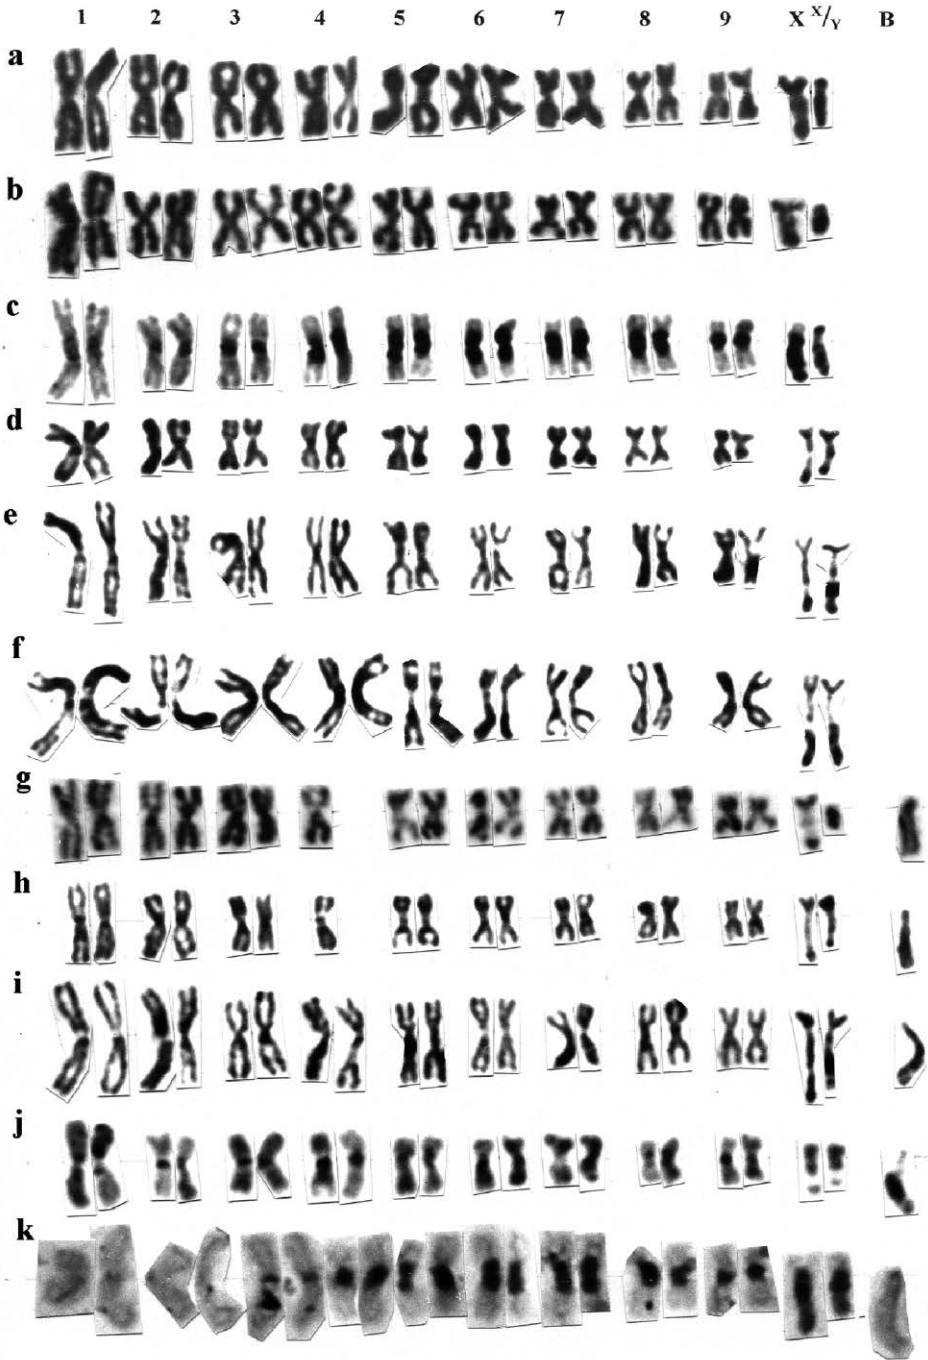 1 2 3 4 5 6 7 8 9 X X/Y B
a
b
c
d
e
f
g
h
i
j
k